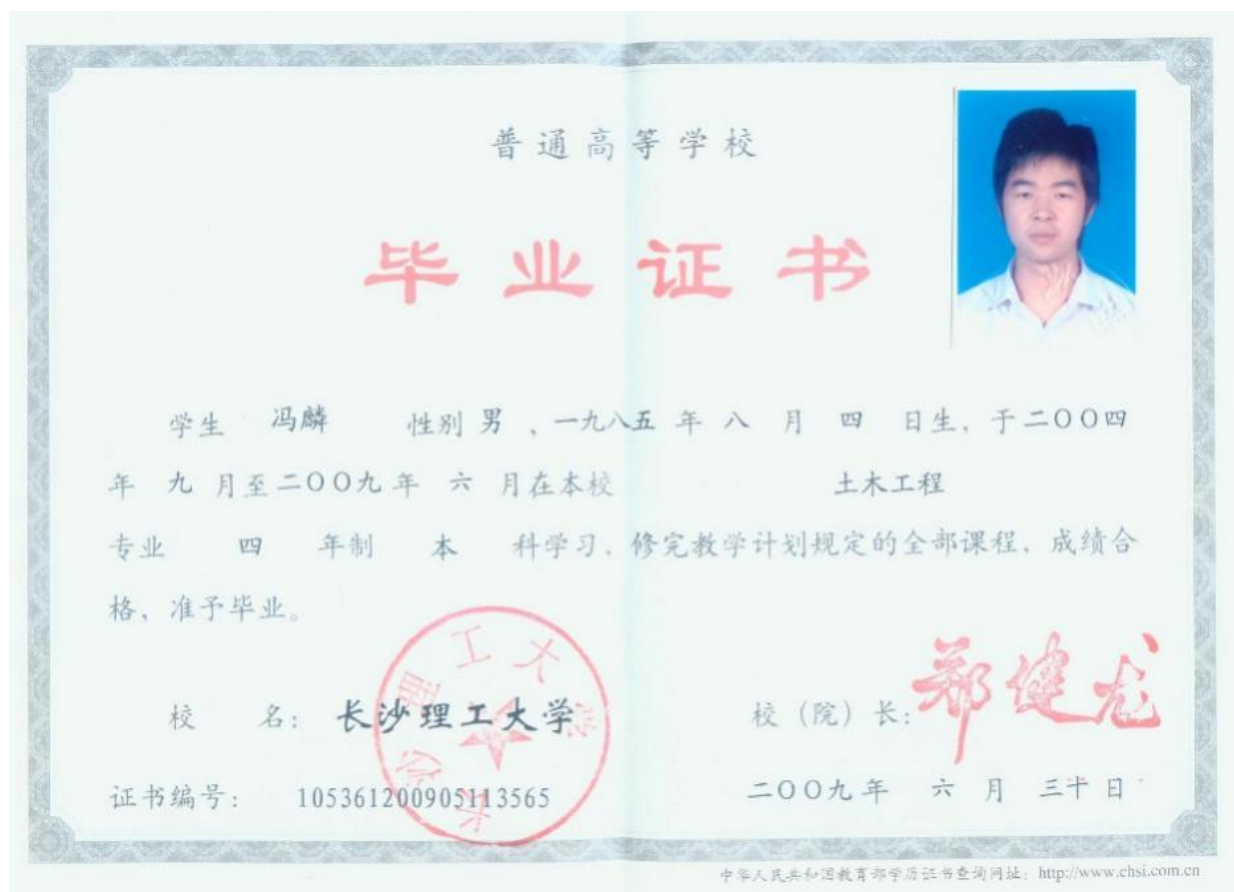 普通高等学校
毕业证书
学生 冯麟 性别 男 ，一九八五 年 八 月 四 日生，于二〇〇四
年 九 月至二〇〇九年 六 月在本校 土木工程
专业 四 年制 本 科学习，修完教学计划规定的全部课程，成绩合
格，准予毕业。
长沙理工大学
校 名： 长沙理工大学 校（院）长：郑健龙
证书编号： 105361200905113565 二〇〇九年 六 月 三十 日
中华人民共和国教育部学历证书查询网址：http://www.chsi.com.cn